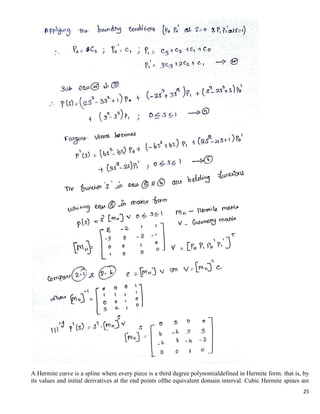 Applying the boundry conditions (P₀ P₀' at S=0 & P₁ P₁' at S=1)
∴ P₀ = C₀ ; P₀' = C₁ ; P₁ = C₃+C₂+C₁+C₀
P₁' = 3C₃+2C₂+C₁ →
Sub equ
P(s) = (2s³-3s²+1)P₀ + (-2s³+3s²)P₁ + (s³-2s²+s)P₀'
+ (s³-s²)P₁' ; 0≤s≤1
Tangent
P'(s) = (6s²-6s)P₀ + (-6s²+6s)P₁ + (3s²-4s+1)P₀'
+ (3s²-2s)P₁' ; 0≤s≤1
The function 's' in equ & are belding functions
Writing equ in matrix form
P(s) = s^T [M_H] V 0≤s≤1 M_H - Hermite matrix
V - Geometry matrix
[M_H] = V = [P₀ P₁ P₀' P₁']^T
-3 3 -2 -1
0 0 1 0
1 0 0 0
Compare & C = [M_H] V V = [M_H]⁻¹ C
where [M_H]⁻¹ =
0 0 0 1
1 1 1 1
0 0 1 0
3 2 1 0
P'(s) = s^T [M_H]^s V [M_H]^s =
0 0 0 0
6 -6 3 3
-6 6 -4 -2
0 0 1 0
A Hermite curve is a spline where every piece is a third degree polynomialdefined in Hermite form: that is, by
its values and initial derivatives at the end points ofthe equivalent domain interval. Cubic Hermite spines are
25